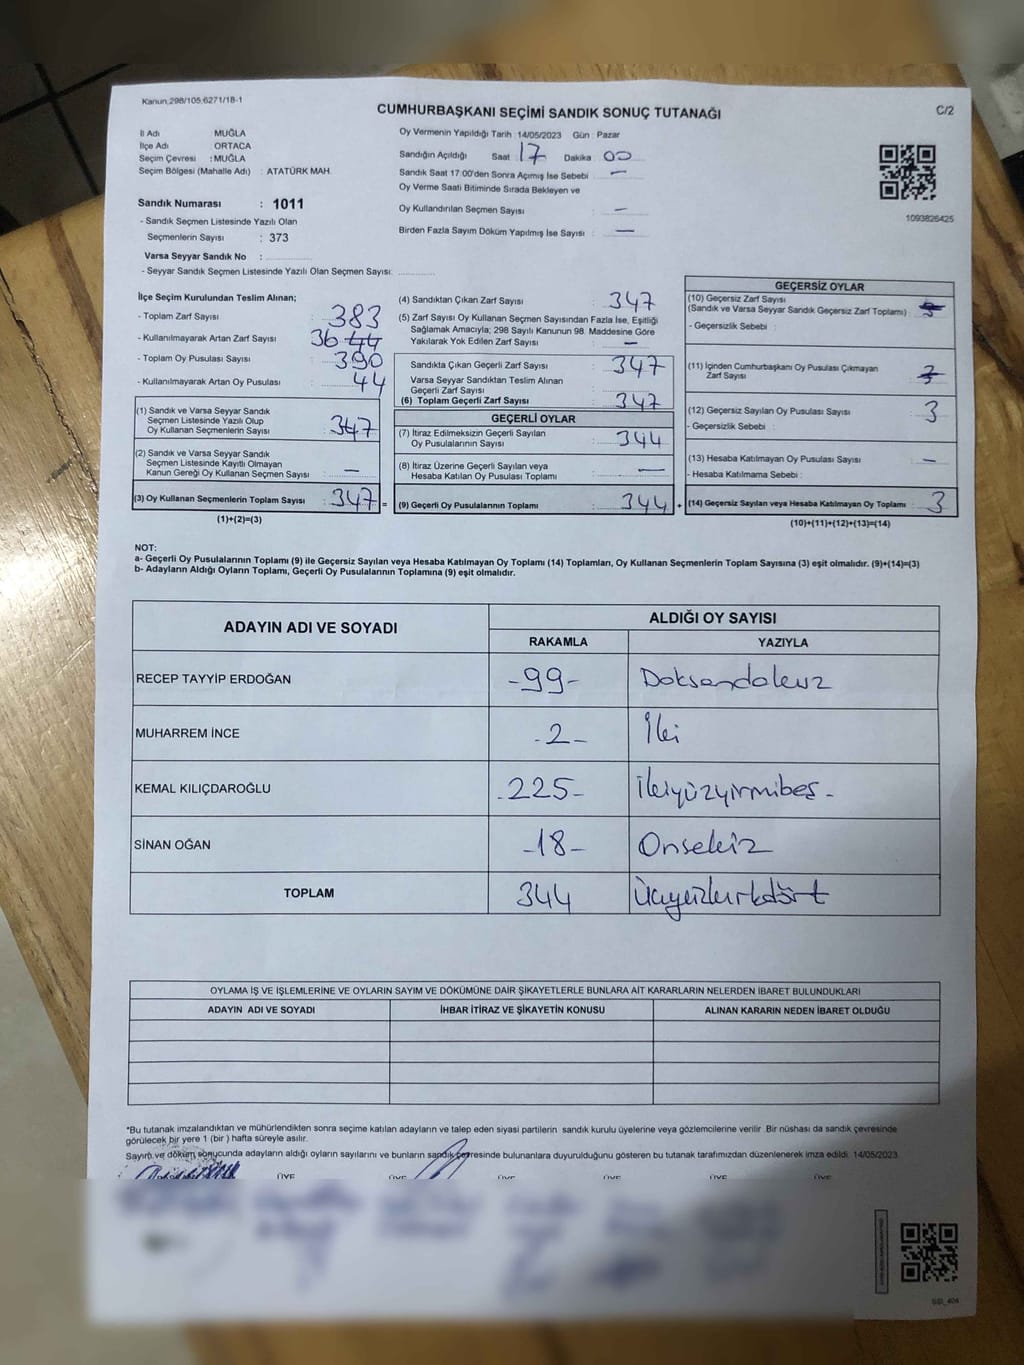 Kanun;298/105;6271/18-1
CUMHURBAŞKANI SEÇİMİ SANDIK SONUÇ TUTANAĞI
C/2
İl Adı : MUĞLA
İlçe Adı : ORTACA
Seçim Çevresi : MUĞLA
Seçim Bölgesi (Mahalle Adı) : ATATÜRK MAH.
Oy Vermenin Yapıldığı Tarih : 14/05/2023 Gün : Pazar
Sandığın Açıldığı Saat 17 Dakika 00
Sandık Saat 17:00'den Sonra Açımış İse Sebebi : —
Oy Verme Saati Bitiminde Sırada Bekleyen ve
Oy Kullandırılan Seçmen Sayısı : —
Birden Fazla Sayım Döküm Yapılmış İse Sayısı : —
1093826425
Sandık Numarası : 1011
- Sandık Seçmen Listesinde Yazılı Olan
Seçmenlerin Sayısı : 373
Varsa Seyyar Sandık No :
- Seyyar Sandık Seçmen Listesinde Yazılı Olan Seçmen Sayısı:
İlçe Seçim Kurulundan Teslim Alınan;
- Toplam Zarf Sayısı : 383
- Kullanılmayarak Artan Zarf Sayısı : 36 44
- Toplam Oy Pusulası Sayısı : 390
- Kullanılmayarak Artan Oy Pusulası : 44
(1) Sandık ve Varsa Seyyar Sandık
Seçmen Listesinde Yazılı Olup
Oy Kullanan Seçmenlerin Sayısı : 347
(2) Sandık ve Varsa Seyyar Sandık
Seçmen Listesinde Kayıtlı Olmayan
Kanun Gereği Oy Kullanan Seçmen Sayısı : —
(3) Oy Kullanan Seçmenlerin Toplam Sayısı : 347 =
(1)+(2)=(3)
(4) Sandıktan Çıkan Zarf Sayısı : 347
(5) Zarf Sayısı Oy Kullanan Seçmen Sayısından Fazla İse, Eşitliği
Sağlamak Amacıyla; 298 Sayılı Kanunun 98. Maddesine Göre
Yakılarak Yok Edilen Zarf Sayısı : —
Sandıkta Çıkan Geçerli Zarf Sayısı : 347
Varsa Seyyar Sandıktan Teslim Alınan
Geçerli Zarf Sayısı :
(6) Toplam Geçerli Zarf Sayısı : 347
GEÇERLİ OYLAR
(7) İtiraz Edilmeksizin Geçerli Sayılan
Oy Pusulalarının Sayısı : 344
(8) İtiraz Üzerine Geçerli Sayılan veya
Hesaba Katılan Oy Pusulası Toplamı : —
(9) Geçerli Oy Pusulalarının Toplamı : 344 +
GEÇERSİZ OYLAR
(10) Geçersiz Zarf Sayısı
(Sandık ve Varsa Seyyar Sandık Geçersiz Zarf Toplamı) : 3
- Geçersizlik Sebebi :
(11) İçinden Cumhurbaşkanı Oy Pusulası Çıkmayan
Zarf Sayısı : 3
(12) Geçersiz Sayılan Oy Pusulası Sayısı : 3
- Geçersizlik Sebebi :
(13) Hesaba Katılmayan Oy Pusulası Sayısı : —
- Hesaba Katılmama Sebebi :
(14) Geçersiz Sayılan veya Hesaba Katılmayan Oy Toplamı : 3
(10)+(11)+(12)+(13)=(14)
NOT:
a- Geçerli Oy Pusulalarının Toplamı (9) ile Geçersiz Sayılan veya Hesaba Katılmayan Oy Toplamı (14) Toplamları, Oy Kullanan Seçmenlerin Toplam Sayısına (3) eşit olmalıdır. (9)+(14)=(3)
b- Adayların Aldığı Oyların Toplamı, Geçerli Oy Pusulalarının Toplamına (9) eşit olmalıdır.
ADAYIN ADI VE SOYADI
ALDIĞI OY SAYISI
RAKAMLA YAZIYLA
RECEP TAYYİP ERDOĞAN -99- Doksandokuz
MUHARREM İNCE -2- İki
KEMAL KILIÇDAROĞLU -225- İkiyüzyirmibeş-
SİNAN OĞAN -18- Onsekiz
TOPLAM 344 Üçyüzkırkdört
OYLAMA İŞ VE İŞLEMLERİNE VE OYLARIN SAYIM VE DÖKÜMÜNE DAİR ŞİKAYETLERLE BUNLARA AİT KARARLARIN NELERDEN İBARET BULUNDUKLARI
ADAYIN ADI VE SOYADI İHBAR İTİRAZ VE ŞİKAYETİN KONUSU ALINAN KARARIN NEDEN İBARET OLDUĞU
*Bu tutanak imzalandıktan ve mühürlendikten sonra seçime katılan adayların ve talep eden siyasi partilerin sandık kurulu üyelerine veya gözlemcilerine verilir. Bir nüshası da sandık çevresinde
görülecek bir yere 1 (bir ) hafta süreyle asılır.
Sayım ve döküm sonucunda adayların aldığı oyların sayılarını ve bunların sandık çevresinde bulunanlara duyurulduğunu gösteren bu tutanak tarafımızdan düzenlenerek imza edildi. 14/05/2023
ÜYE ÜYE ÜYE ÜYE ÜYE ÜYE